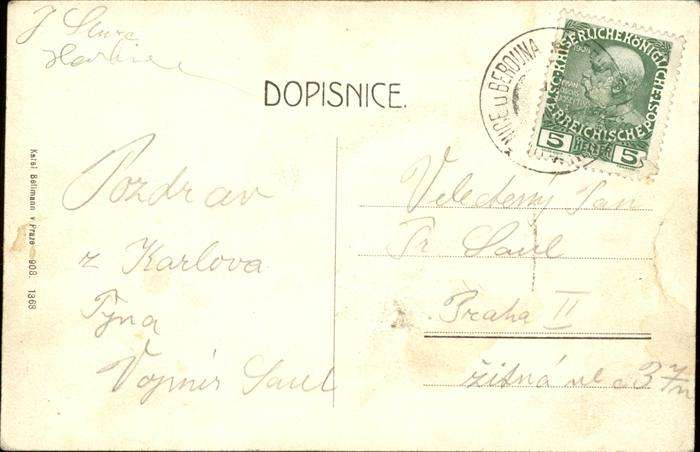 DOPISNICE.
NICE U BEROUNA
KAISERLICHE KÖNIGLICHE
ÖSTERREICHISCHE POST
1908
5 HELLER 5
Karel Bellmann v Praze 908. 1368
Pozdrav
z Karlova
Týna
Vojmír Saul
Veleděný Pan
Fr Saul
Praha II
žitná ul č 37n